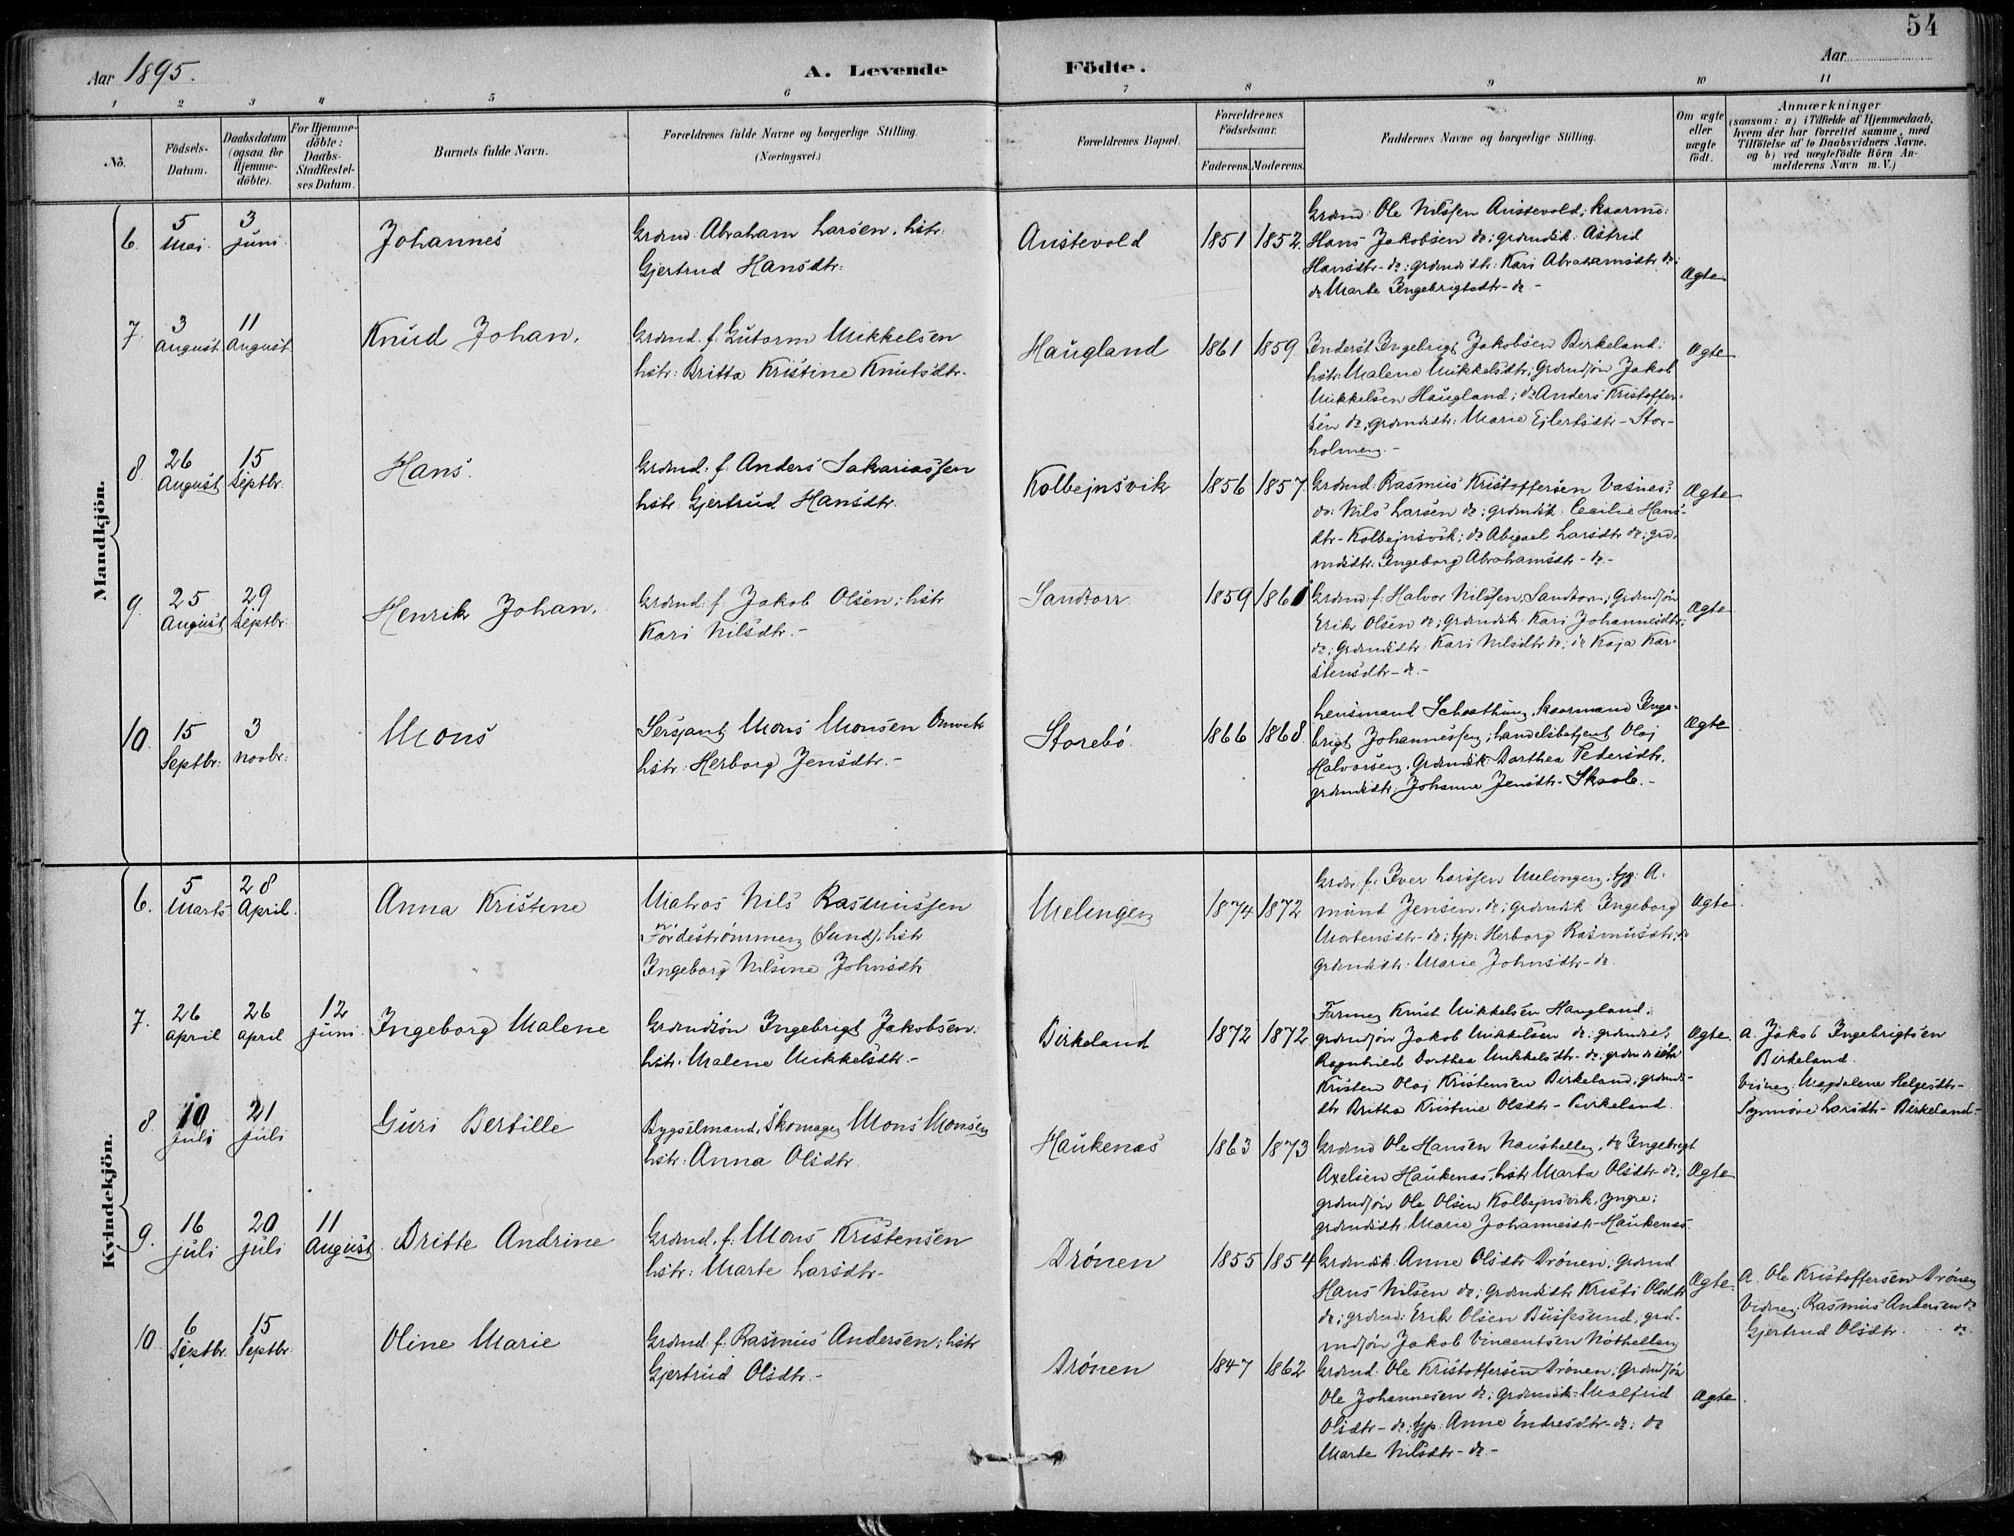 54
Aar 1895.
A. Levende Födte.
Aar
1 2 3 4 5 6 7 8 9 10 11
No.
Födsels-
Datum.
Daabsdatum
(ogsaa for
Hjemme-
döbte).
For Hjemme-
döbte:
Daabs-
Stadfæstel-
ses Datum.
Barnets fulde Navn.
Forældrenes fulde Navne og borgerlige Stilling.
(Næringsvei.)
Forældrenes Bopæl.
Forældrenes
Födselsaar.
Faderens. Moderens.
Faddernes Navne og borgerlige Stilling.
Om ægte
eller
uægte
födt.
Anmærkninger
(saasom: a) i Tilfælde af Hjemmedaab,
hvem der har forrettet samme, med
Tilföielse af to Daabsvidners Navne.
og b) ved uægtefödte Börn An-
melderens Navn m. V.)
Mandkjön.
6. 5 Mai. 3 juni. Johannes
Grdmd. Abraham Larsen, hstr.
Gjertrud Hansdtr:
Austevold 1851 1852.
Grdmd: Ole Nilssen Austevold; kaarmd:
Hans Jakobsen do; grdmdsk: Astrid
Hansdtr- do; grdmdsdtr: Kari Abrahamsdtr do;
do Marte Ingebrigtsdtr- do -
Ægte
7. 3 August 11 August Knud Johan.
Grdmd. f. Gutorm Mikkelsen
hstr: Britta Kristine Knutsdtr.
Haugland 1861 1859
Inderst Ingebrigt Jakobsen Birkeland;
hstr: Malene Mikkelsdtr; Grdmdsøn Jakob
Mikkelsen Haugland; do Anders Kristoffer-
sen do; grdmdsdtr: Marie Ejlertsdtr - Stor-
holmen. -
Ægte
8. 26 August 15 Septbr. Hans.
Grdmd. f. Anders Sakariassen
hstr. Gjertrud Hansdtr.
Kolbejnsvik 1856 1857.
Grdmd. Rasmus Kristoffersen Vasnes;
do: Nils Larsen do; grdmdsk. Cecilie Hans-
dtr- Kolbejnsvik; do Abigael Larsdtr do; grd-
mdsdtr. Ingeborg Abrahamsdtr- do -
Ægte
9. 25 August 29 Septbr. Henrik Johan.
Grdmd: f. Jakob Olsen; hstr
Kari Nilsdtr. -
Sandtorv. 1859
Grdmd: f: Halvor Nilssen, Sandtorv; Grdmdsøn
Erik Olsen do; grdmdsk. Kari Johannesdtr;
do; grdmdsdtr: Kari Nilsdtr do; do Kaja Kar-
stensdtr- do -
Ægte
10. 15 Septbr: 3 Novbr: Mons
Sersjant Mons Monsen Onvik
hstr: Herborg Jensdtr. -
Storebö. 1866 1868.
Lensmand Schaathun, kaarmand Inge-
brigt Johannessen; handelsbetjent Olaj
Halvorsen, Grdmdsk. Dorthea Pedersdtr.
grdmdsdtr. Johanne Jensdtr- Skaale. -
Ægte
Kvindekjön.
6. 5 Marts 28 April. Anna Kristine
Matros Nils Rasmussen
Fördeströmmen (Sund); hstr
Ingeborg Nilsine Johnsdtr
Melingen 1874 1872
Grdm. f. Iver Larssen Melingen, tjg: A-
mund Jensen, do; grdmdsk. Ingeborg
Mortensdtr- do; tjp: Herborg Rasmusdtr; do
grdmdsdtr. Marie Johnsdtr- do.
Ægte.
7. 26 April 26 April 12 juni. Ingeborg Malene
Grdmdsön Ingebrigt Jakobsen;
hstr: Malene Mikkelsdtr -
Birkeland 1872 1872
Knut Mikkelsen Haugland;
grdmdsøn Jakob Mikkelsen do;
Ragnhild Dorthea Mikkelsdtr- do;
Kristen Olaj Kristensen Birkeland; grdmds-
dtr Britha Kristine Olsdtr- Birkeland.
Ægte.
a. Jakob Ingebrigtsen
Birkeland.
Magdalene Helgesdtr-
Synnöve Larsdtr- Birkeland-
8. 10 juli 21 juli Guri Bertille
Bygselmand, Skomager Mons Monsen
hstr: Anna Olsdtr.
Haukenas 1863 1873
Grdmd Ole Hansen Naushellen, do Ingebrigt
Axelsen Haukenas, hstr Marta Olsdtr- do;
grdmdsøn Ole Olsen Kolbejnsvik, yngre;
grdmdsdtr: Marie Johannesdtr- Haukenas.
Ægte
9. 16 juli 20 juli 11 August. Britte Andrine
Grdmd. f: Mons Kristensen
hstr: Marte Larsdtr-
Drönen 1855 1854
Grdmdsk. Anne Olsdtr Drönen; grdmd.
Hans Nilsen do; grdmdsdtr Kristi Olsdtr
do; grdmd: Erik Olsen; grd-
mdsøn Jakob Vincentsen Nöthellen
Ægte.
a. Ole Kristoffersen Drönen
Rasmus Andersen do
Gjertrud Olsdtr. do.
10. 6 Septbr. 15 Septbr. Oline Marie
Grdmd. f. Rasmus Andersen; hstr
Gjertrud Olsdtr. -
Drönen 1847 1862
Grdmd. Ole Kristoffersen Drönen; Grdmdsøn
Ole Johannesen do; Grdmdsk: Malfrid
Olsdtr- do; tjp. Anne Endresdtr- do; do
Marte Nilsdtr- do -
Ægte.